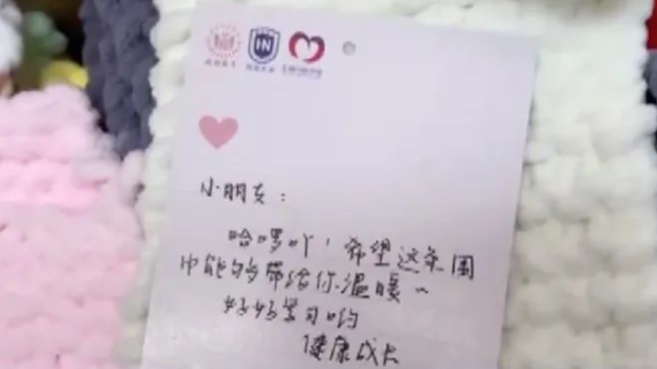 IN
小朋友：
哈啰吖，希望这条围
巾能够带给你温暖~
好好学习哟
健康成长